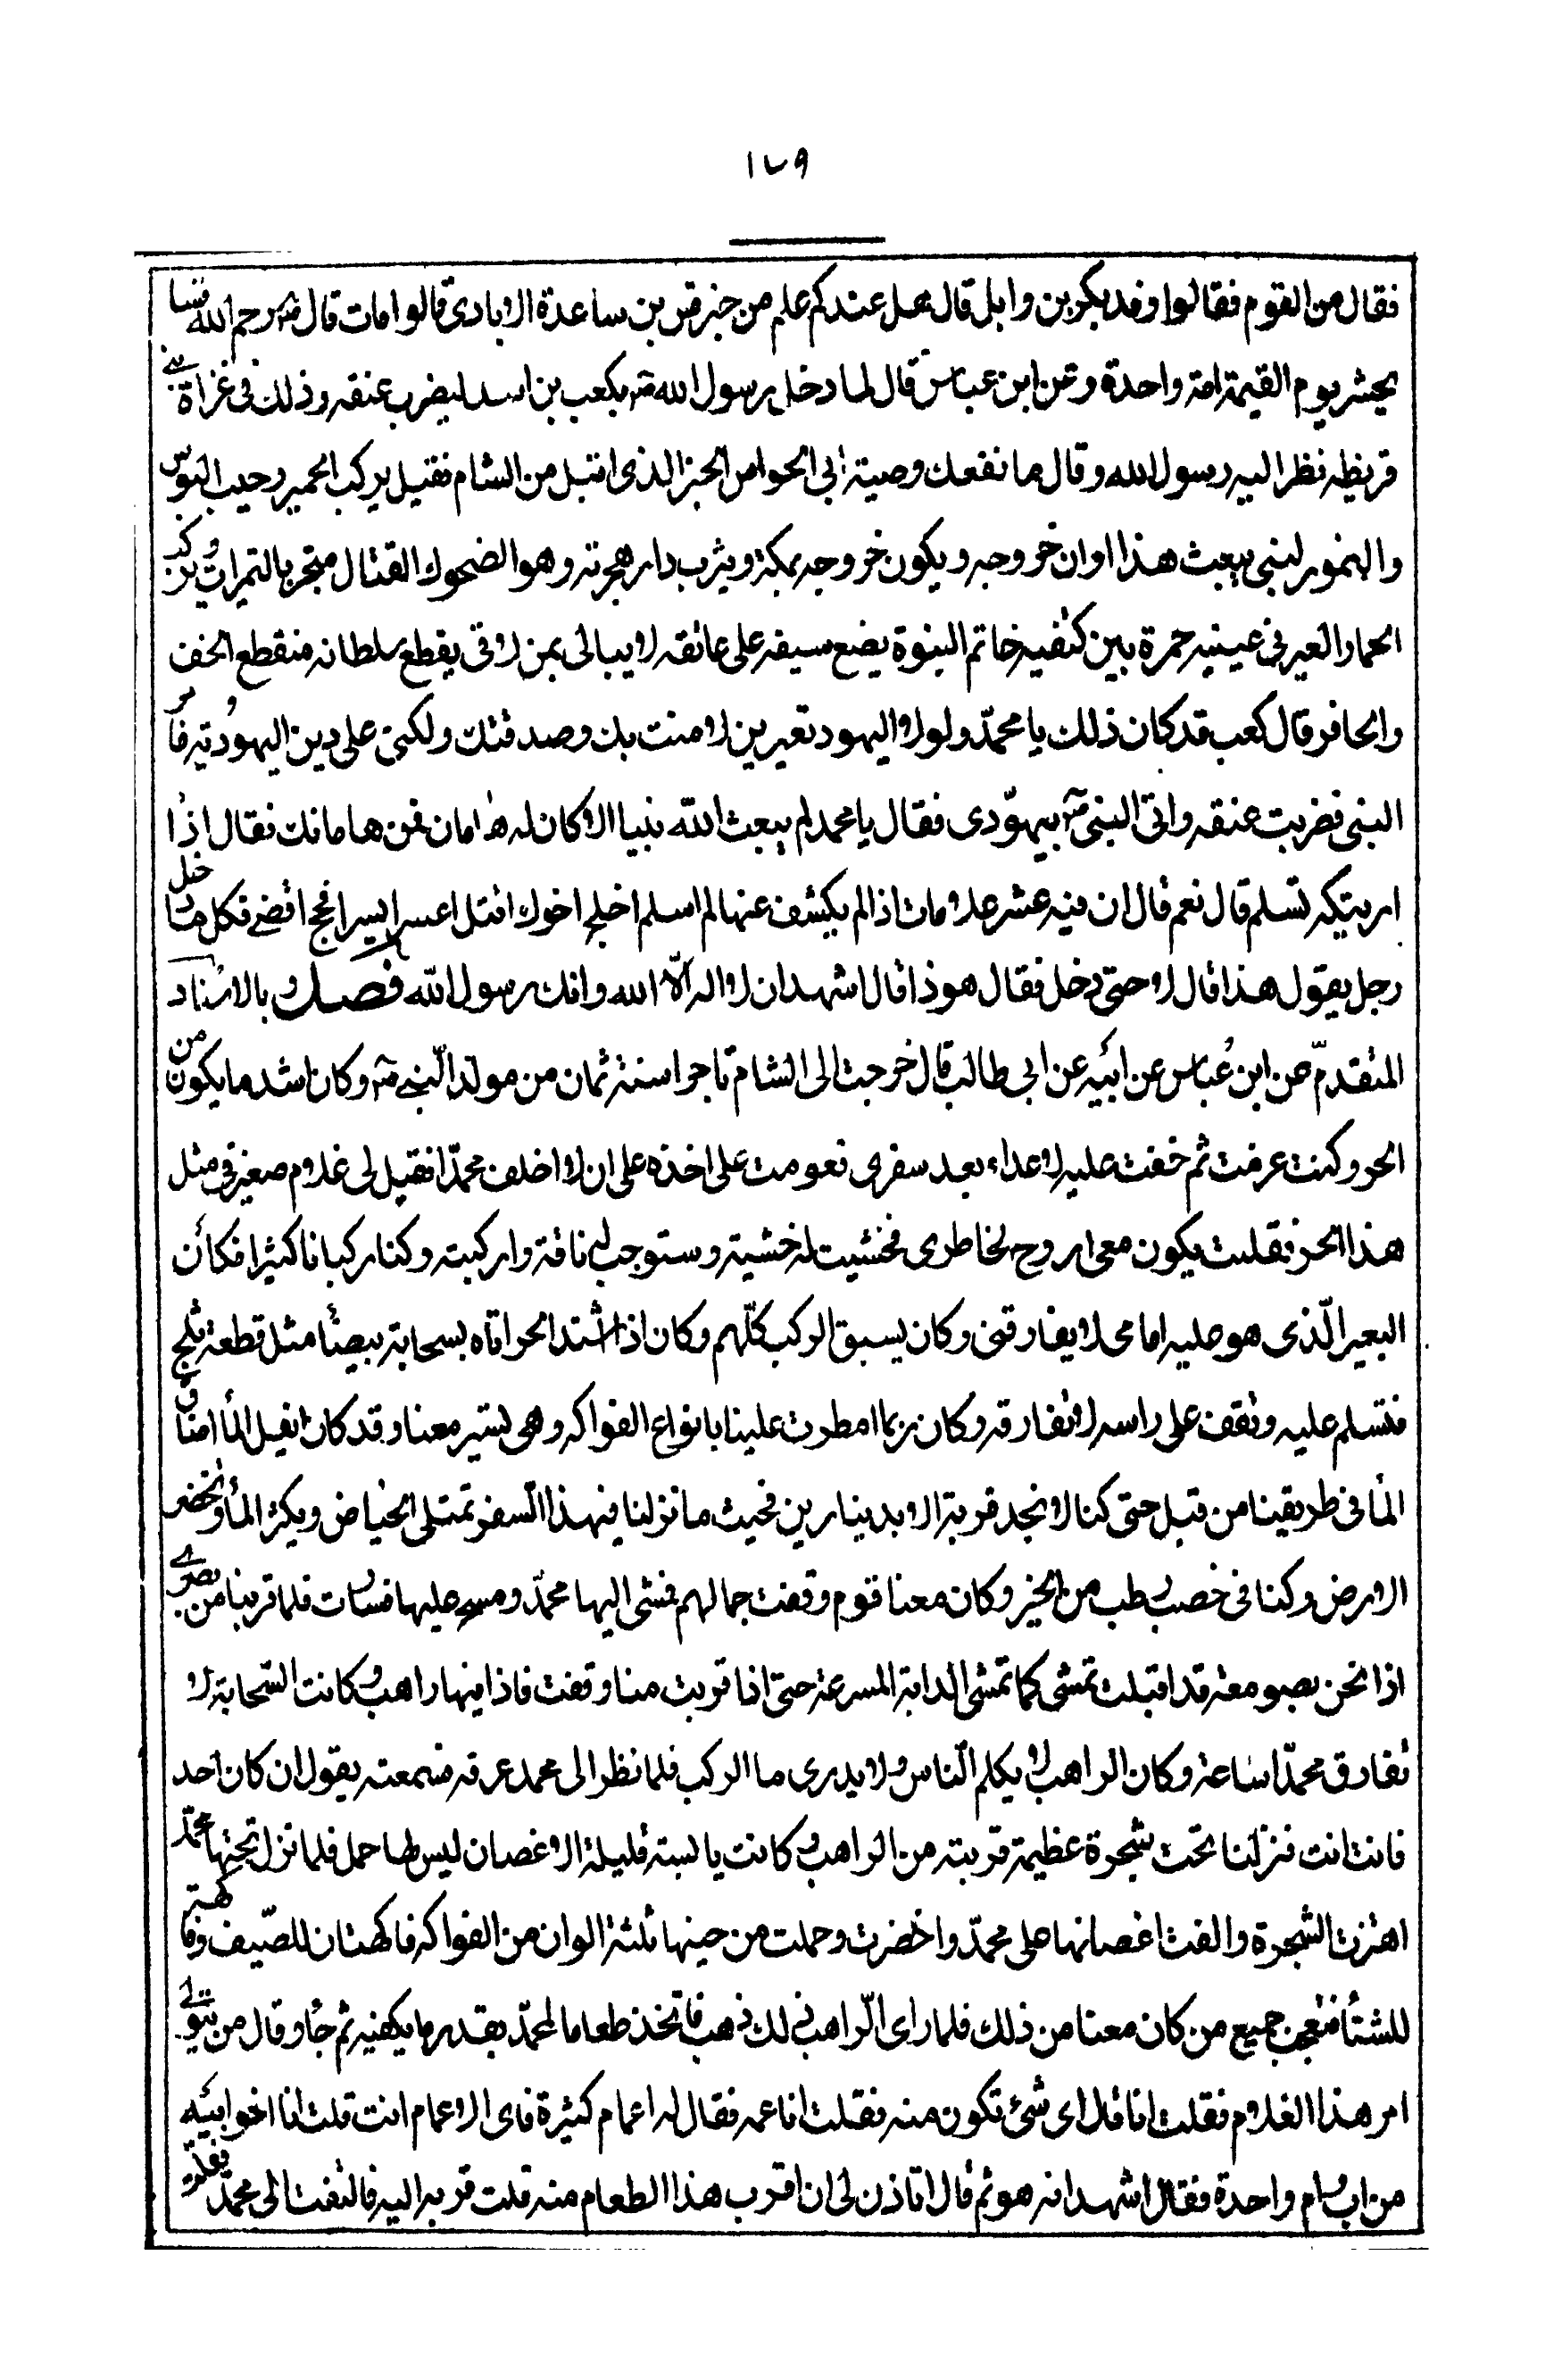 ١٧٩
فقال من القوم فقالوا وفد بكر بن وايل قال هل عندكم علم من خبر قس بن ساعدة الايادى قالوا مات قال ص رحم الله قسا
يحشر يوم القيمة امة واحدة وعن ابن عباس قال لما دخل رسول الله ص بكعب بن اسد ليضرب عنقه وذلك فى غزاة بنى
قريظه نظر اليه رسول الله وقال ما نفعك وصية ابى الحواس الحبر الذى اقبل من الشام فقيل يركب الحمير وحيب البوس
والخمور لنبى يبعث هذا اوان خروجه ويكون خروجه بمكة ويثرب دار هجرته وهو الضحوك القتال متجر بالتميرات ويركب
الحمار العير فى عينيه حمرة بين كتفيه خاتم النبوة يضع سيفه على عاتقه لا يبالى بمن لاقى يقطع سلطانه منقطع الخف
والحافر قال كعب قد كان ذلك يا محمّد ولولا اليهود تعيرين لامنت بك وصدقتك ولكنى على دين اليهوديّة فامر
النبى فضربت عنقه واتى النبى ص بيهوّدى فقال يا محمد لم يبعث الله نبيا الا كان له هامان فمن هامانك فقال اذا
اريتكه تسلم قال نعم قال ان فيه عشر علامات اذا لم يكشف عنها لم اسلم اخلج اخوك اقتل اعسر ايسر افحج افضى فكل ما دخل
رجل يقول هذا قال لا حتى دخل فقال هو ذا قال اشهد ان لا اله الّا الله وانك رسول الله فصل وبالاسناد
المتقدّم عن ابن عباس عن ابيه عن ابى طالب قال خرجت الى الشام تاجرا سنة ثمان من مولد النبى ص وكان اشد ما يكون من
الحر وكنت عرفت ثم خفت عليه الاعداء بعد سفرى فعومت على اخذه على ان لا اخلف محمّدا فقيل لى غلام صغير فى مثل
هذا الحر فقلت يكون معى اروح لخاطرى فحشيت له خشية وستوجب لى ناقة واركبته وكنا ركبانا كثيرا فكان
البعير الّذى هو عليه امامى لا يفارقنى وكان يسبق الركب كلّهم وكان اذا اشتد الحر اتاه بسحابة بيضا مثل قطعة ثلج
فتسلم عليه وتقف على راسه لا تفارقه وكان ربما امطرت علينا بانواع الفواكه وهى تسير معنا وقد كان
الما فى طريقنا من قبل حتى كنا لا نجد قربة الا بدينارين فحيث ما نزلنا فى هذا السفر تمتلى الحياض ويكثر الما وتخضر
الارض وكنا فى خصب وطب من الخير وكان معنا قوم وقفت جمالهم فمشى اليها محمّد ومسح عليها فسارت فلما قربنا من بصرى
اذا نحن بصومعة قد اقبلت تمشى كما تمشى الدابة المسرعة حتى اذا قربت منا وقفت فاذا فيها راهب وكانت السّحابة لا
تفارق محمّدا ساعة وكان الراهب لا يكلم النّاس ولا يدرى ما الركب فلما نظر الى محمد عرفه فسمعته يقول ان كان احد
فانت انت فنزلنا تحت شجرة عظيمة قريبة من الراهب وكانت يابسة قليلة الاغصان ليس لها حمل فلما نزل تحتها محمّد
اهتزت الشجرة والقت اغصانها على محمّد واخضرت وحملت من حينها ثلثة الوان من الفواكه فاكهتان للصّيف وفاكهة
للشتا فتعجب جميع من كان معنا من ذلك فلما راى الّراهب ذلك ذهب فاتخذ طعاما لمحمّد بقدر ما يكفيه ثم جا وقال من يتولى
امر هذا الغلام فقلت انا قال اى شئ تكون منه فقلت انا عمه فقال له اعمام كثيرة فاى الاعمام انت قلت انا اخو ابيه
من اب وام واحدة فقال اشهد انه هو ثم قال اتاذن لى ان اقرب هذا الطعام منه قلت قربه اليه فالتفت الى محمّد فقلت